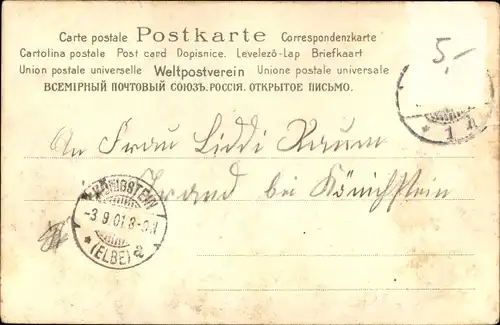 Carte postale Postkarte Correspondenzkarte
Cartolina postale Post card Dopisnice. Levelező-Lap Briefkaart
Union postale universelle Weltpostverein Unione postale universale
ВСЕМІРНЫЙ ПОЧТОВЫЙ СОЮЗЪ. РОССІЯ. ОТКРЫТОЕ ПИСЬМО.
5,-
* 1 n
An Frau Liddi Raum
in Strand bei Königstein
KÖNIGSTEIN
-3 9 01 8-9.V
* (ELBE) a